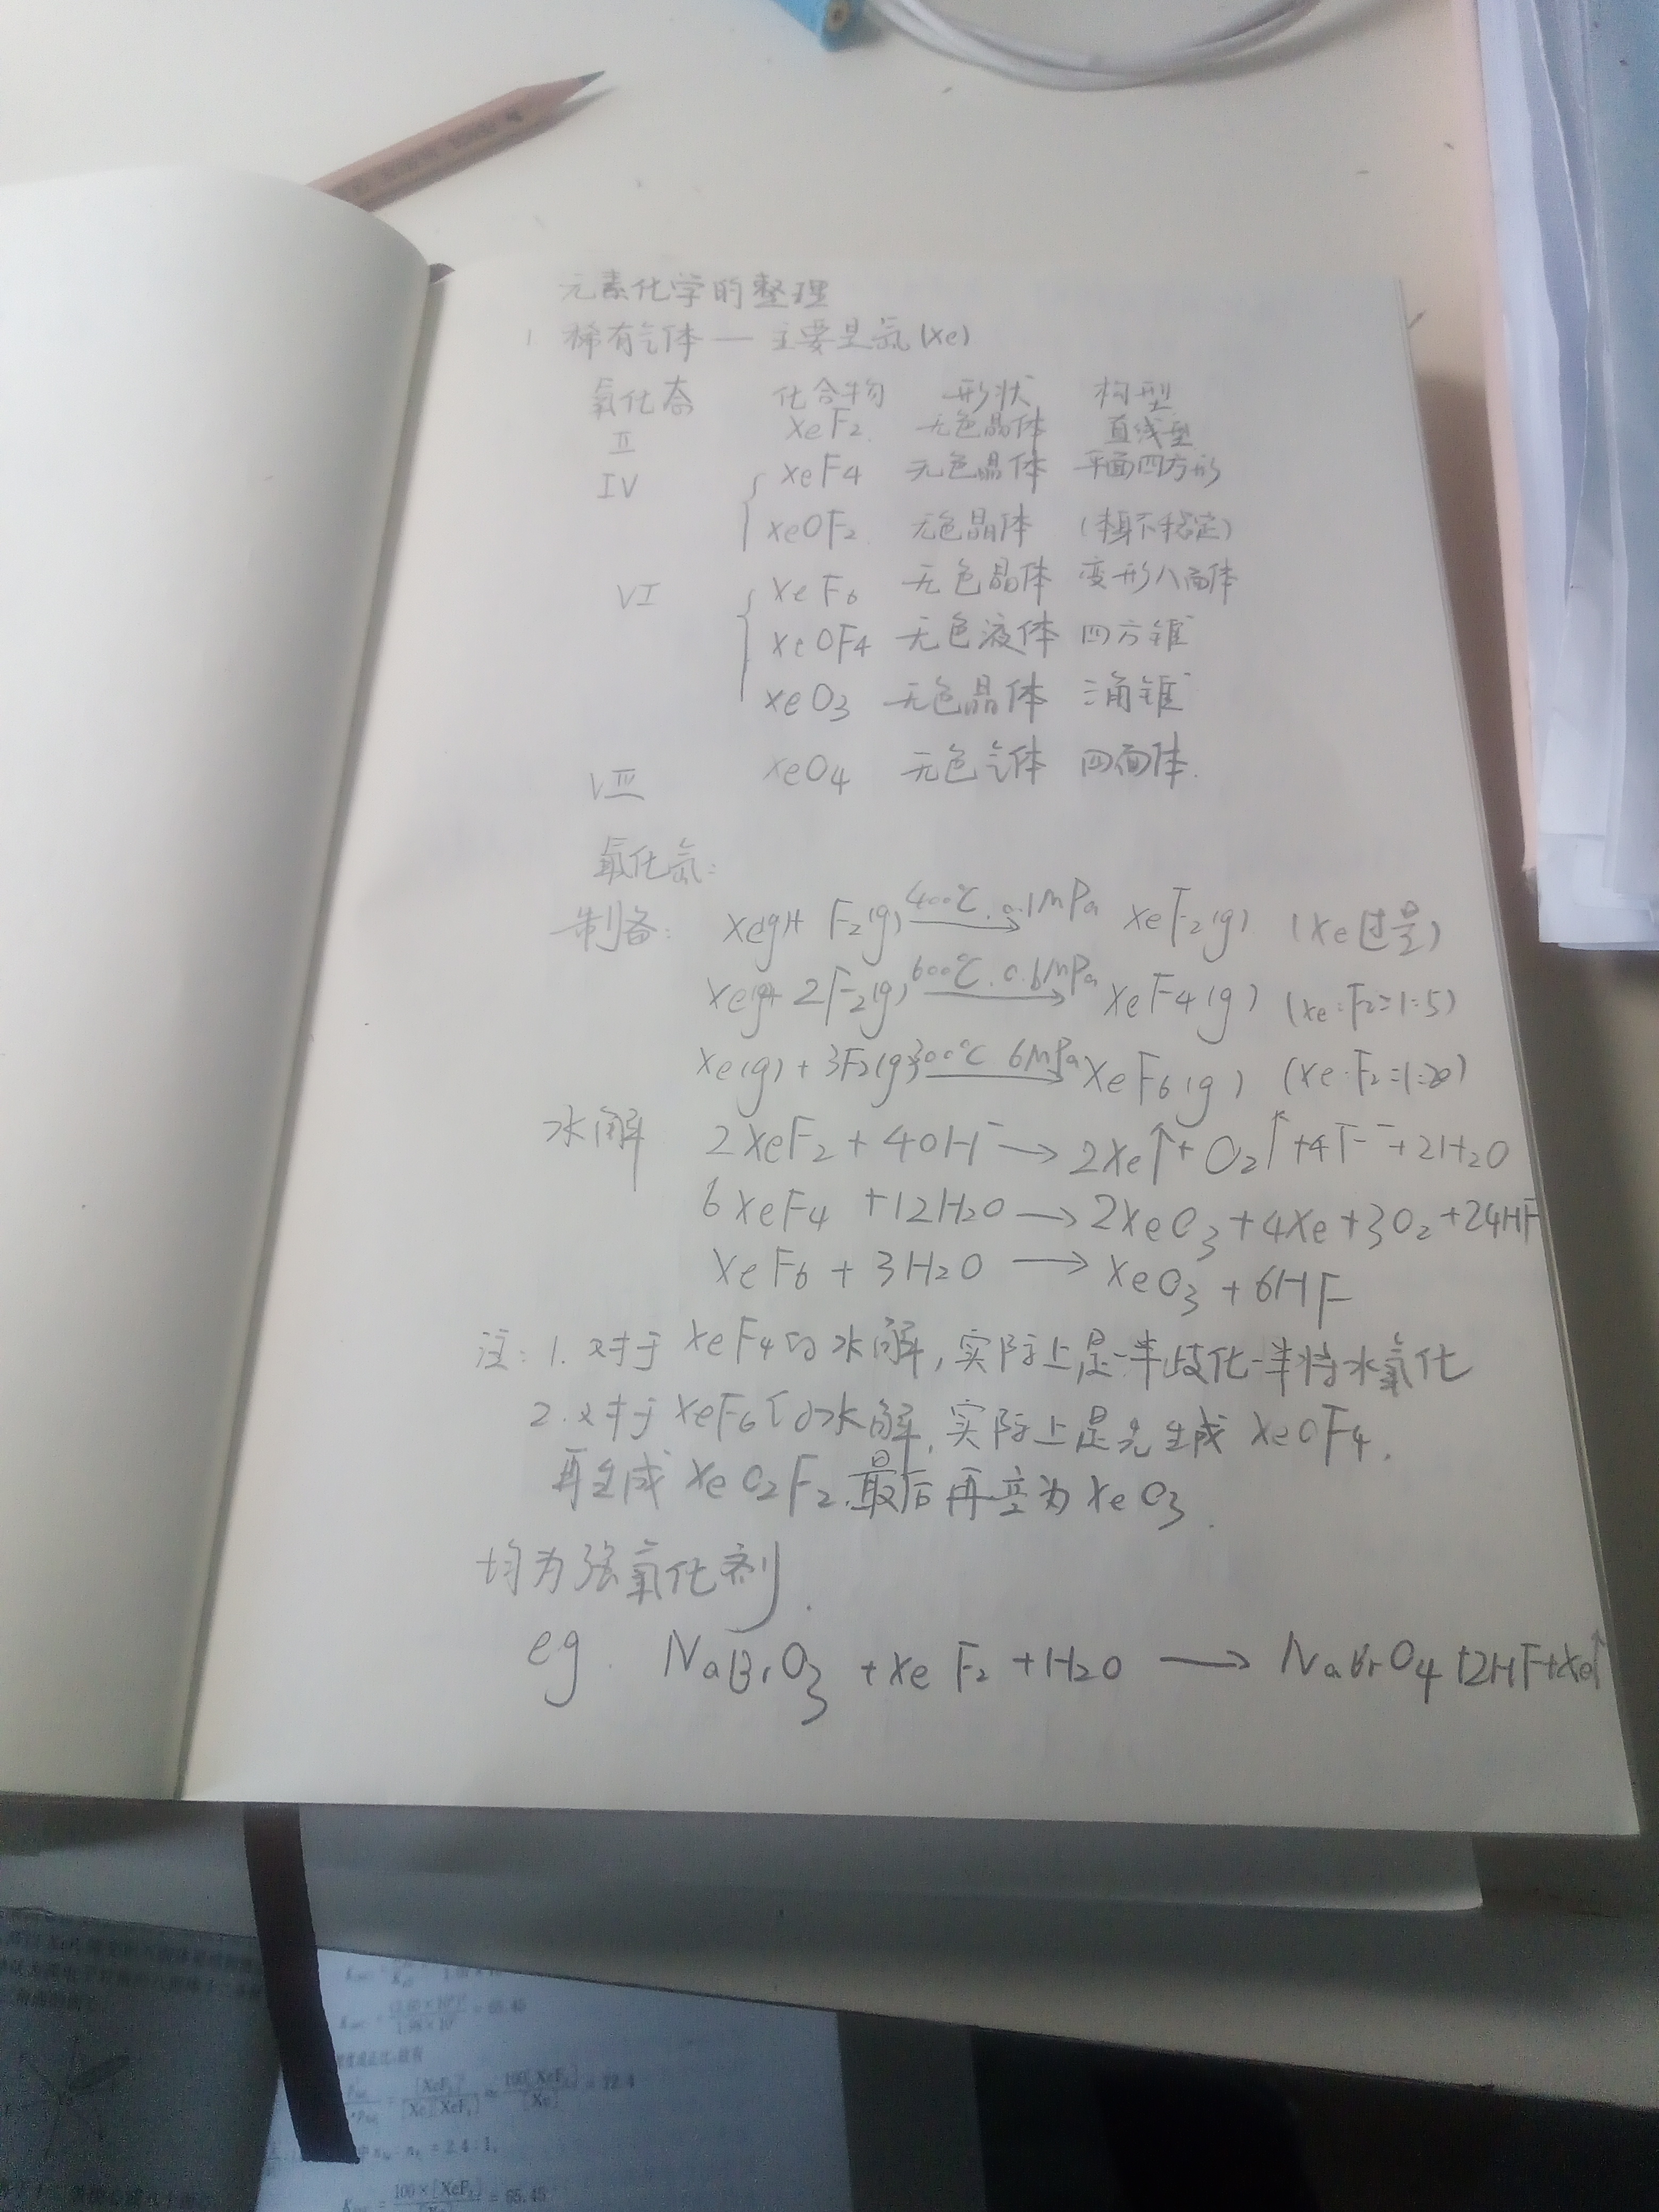 元素化学的整理
1 稀有气体 — 主要是氙(Xe)
氧化态 化合物 形状 构型
II XeF2 无色晶体 直线型
IV XeF4 无色晶体 平面四方形
XeOF2 无色晶体 (不稳定)
VI XeF6 无色晶体 变形八面体
XeOF4 无色液体 四方锥
XeO3 无色晶体 三角锥
VIII XeO4 无色气体 四面体.
氟化氙:
制备: Xe(g)+ F2(g) 400℃. 0.1MPa → XeF2(g) (Xe过量)
Xe(g)+ 2F2(g) 600℃. 0.6MPa → XeF4(g) (Xe:F2=1:5)
Xe(g) + 3F2(g) 300℃ 6MPa → XeF6(g) (Xe:F2=1:20)
水解 2XeF2 + 4OH⁻ → 2Xe↑ + O2↑ +4F⁻ +2H2O
6XeF4 +12H2O → 2XeO3 +4Xe +3O2 +24HF
XeF6 + 3H2O → XeO3 + 6HF
注: 1. 对于XeF4的水解, 实际上是一半歧化一半将水氧化
2. 对于XeF6的水解, 实际上是先生成XeOF4.
再生成XeO2F2, 最后再变为XeO3.
均为强氧化剂.
eg. NaBrO3 +XeF2 +H2O → NaBrO4 +2HF+Xe↑
= 65.45
1.98×10
[XeF
[Xe][XeF
100[XeF
[Xe]
= 12.4
= 2.4 : 1,
100×[XeF
= 65.45